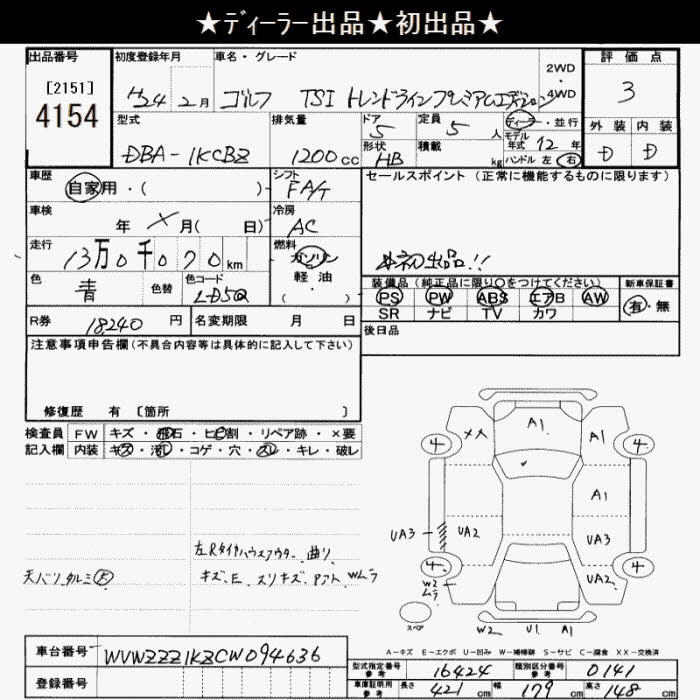 ★ディーラー出品★初出品★
出品番号 初度登録年月 車名・グレード 評価点
[2151]
4154
H24年 2月 ゴルフ TSI トレンドラインプレミアムエディション 2WD・4WD 3
型式 排気量 ドア 定員 ディーラー・並行 外装 内装
DBA-1KCBZ 1200cc 5 5人 モデル年式 12年 D D
形状 HB 積載 kg ハンドル 左 右
車歴 自家用・( ) シフト FAT セールスポイント (正常に機能するものに限ります)
車検 年 月( 日) 冷房 AC
走行 13万0千070km 燃料 ガソリン 軽油・( )
本初出品!!
色 青 色替 色コード LD5Q
装備品 (純正品に限り○をつけてください) 新車保証書
PS PW ABS エアB AW 有・無
SR ナビ TV カワ
R券 18240円 名変期限 月 日
後日品
注意事項申告欄(不具合内容等は具体的に記入して下さい)
修復歴 有 [箇所 ]
検査員 FW キズ・飛石・ヒビ割・リペア跡・×要
記入欄 内装 キズ・汚れ・コゲ・穴・スレ・キレ・破レ
左Rタイヤハウスアウター曲り
天バリ タルミ 大
キズ、E、スリキズ、 Wムラ
XX A1 A1
4 4
A1
UA3 UA2 UA3
4 4
W2
ムラ
UA2
スペア
W2 U1 A1
A-キズ E-エクボ U-凹み W-補修跡 S-サビ C-腐食 XX-交換済
車台番号 WVWZZZ1KZCW094636
登録番号
型式指定番号 参考 16424 類別区分番号 参考 0141
車庫証明用 参考 長さ 421cm 幅 179cm 高さ 148cm